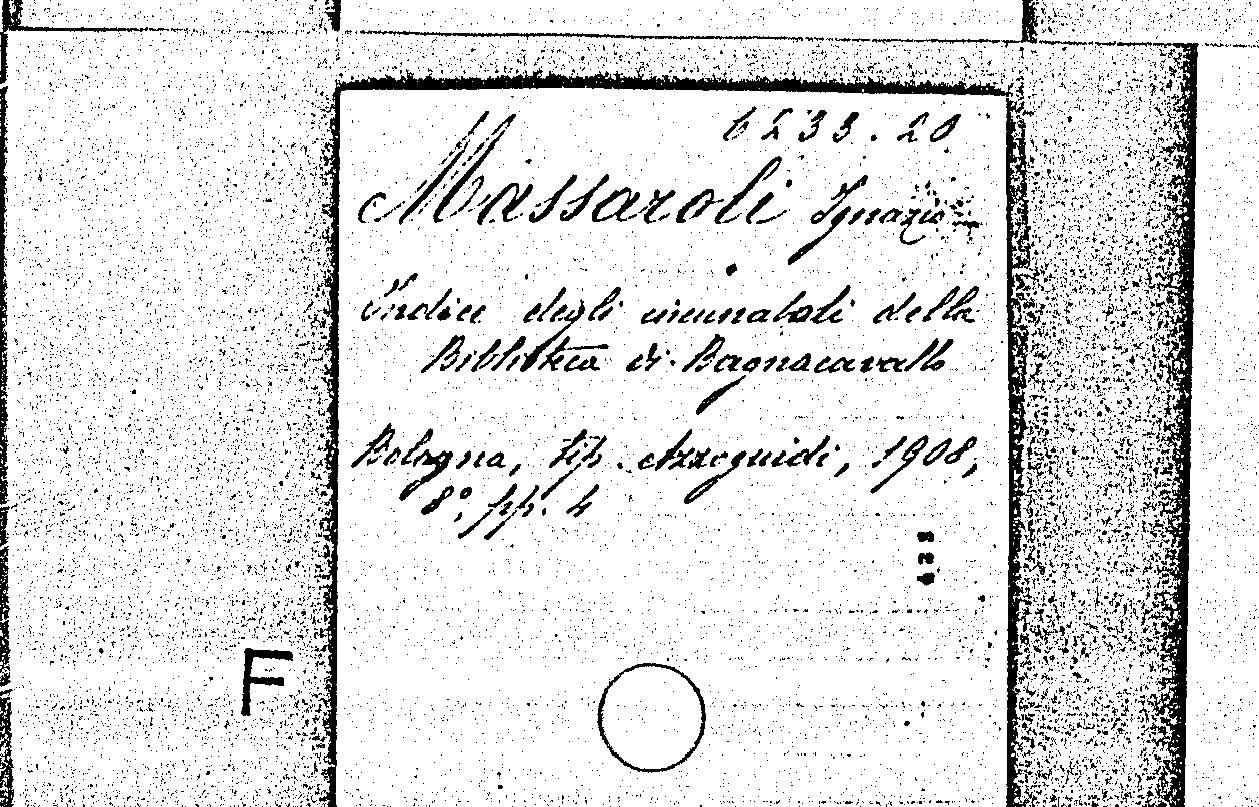 6233.20
Massaroli Ignazio
Indice degli incunaboli della
Biblioteca di Bagnacavallo
Bologna, tip. Azzoguidi, 1908,
8°, pp. 4
F